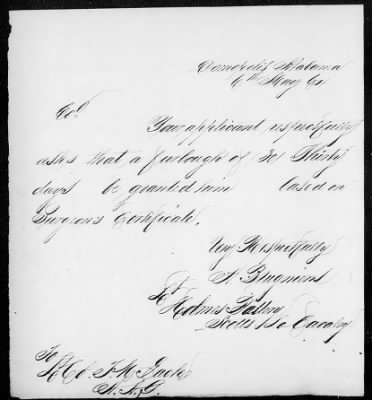 Demopolis Alabama
6th May 64
Col
Your applicant respectfully
asks that a furlough of 30 Thirty
days be granted him based on
Surgeons Certificate,
Very Respectfully
Lt
Holmes
Scotts La Cavalry
To
Lt Col T. M. Jack
A. A. G.